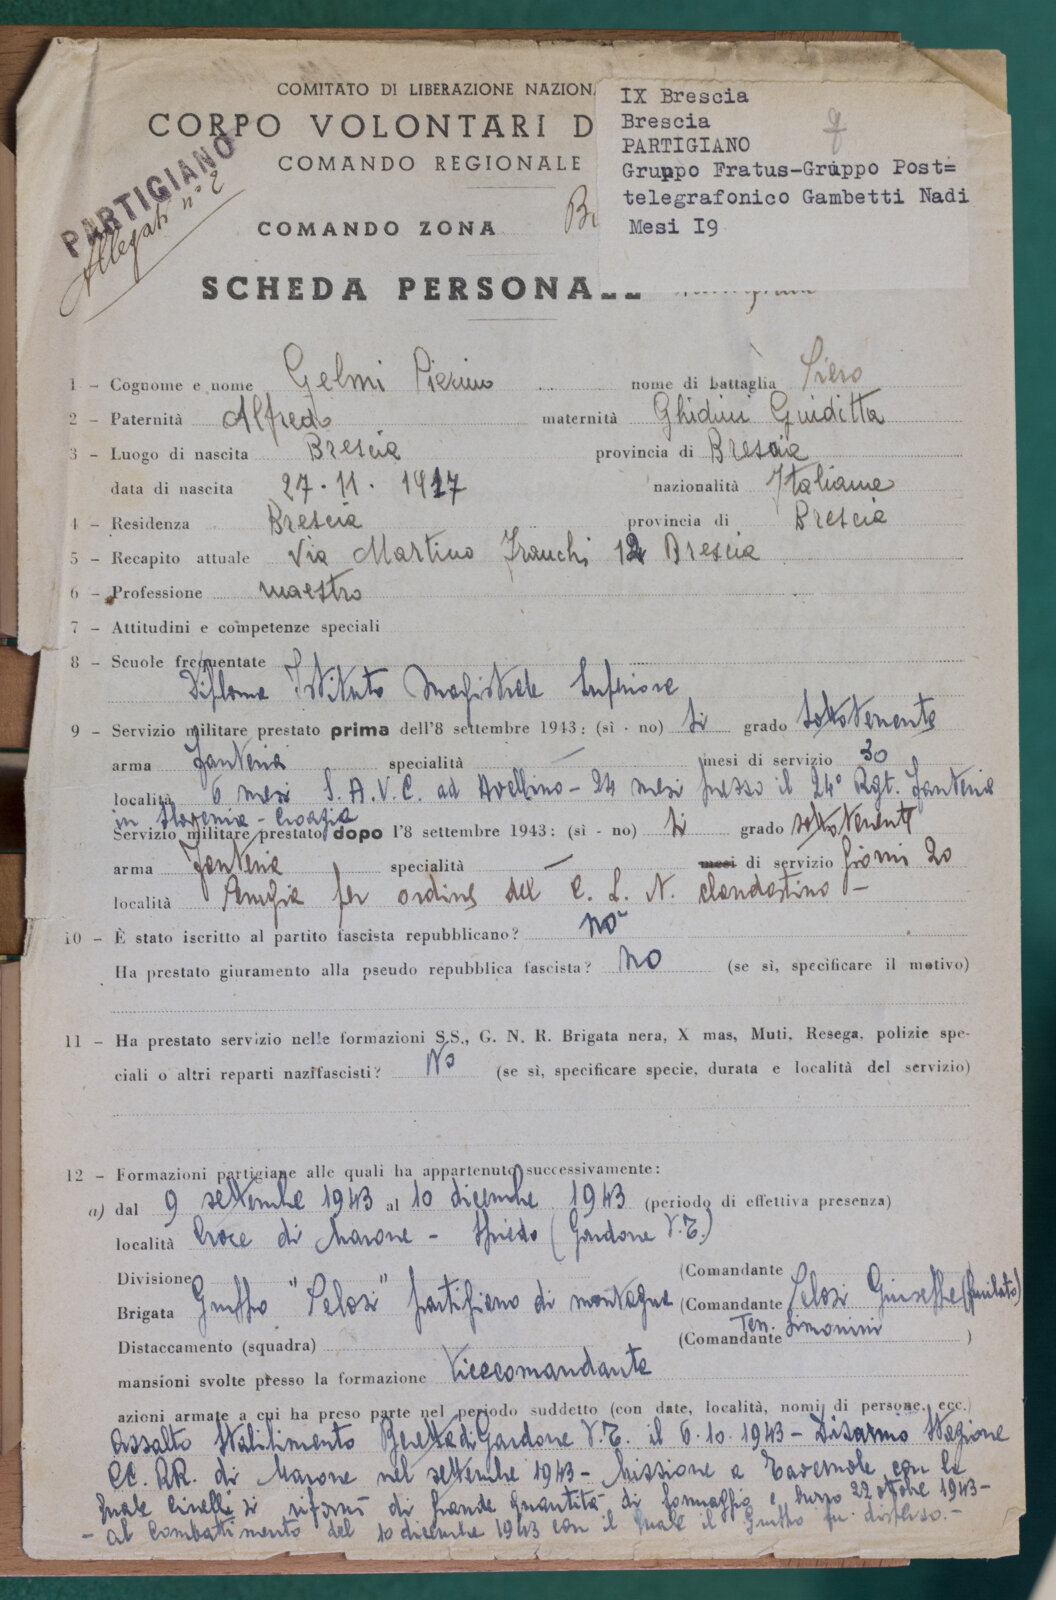 COMITATO DI LIBERAZIONE NAZIONA
CORPO VOLONTARI D
COMANDO REGIONALE
COMANDO ZONA
IX Brescia
Brescia
PARTIGIANO
Gruppo Fratus-Gruppo Post=
telegrafonico Gambetti Nadi
Mesi I9
PARTIGIANO
Allegati n° 2
SCHEDA PERSONALE
1 - Cognome e nome Gelmi Pierino nome di battaglia Piero
2 - Paternità Alfredo maternità Ghidini Guiditta
3 - Luogo di nascita Brescia provincia di Brescia
data di nascita 27.11.1917 nazionalità Italiana
4 - Residenza Brescia provincia di Brescia
5 - Recapito attuale Via Martino Franchi 12 Brescia
6 - Professione maestro
7 - Attitudini e competenze speciali
8 - Scuole frequentate
Diploma Istituto Magistrale Superiore
9 - Servizio militare prestato prima dell'8 settembre 1943: (sì - no) Si grado sottotenente
arma Fanteria specialità — mesi di servizio 30
località 6 mesi S.A.V.C. ad Avellino - 24 mesi presso il 24° Rgt. Fanteria
in Slovenia - Croazia
Servizio militare prestato dopo l'8 settembre 1943: (sì - no) Si grado sottotenente
arma Fanteria specialità — mesi di servizio Giorni 20
località per ordine del C. L. N. clandestino -
10 - È stato iscritto al partito fascista repubblicano? no
Ha prestato giuramento alla pseudo repubblica fascista? no (se sì, specificare il motivo)
11 - Ha prestato servizio nelle formazioni S.S., G. N. R. Brigata nera, X mas, Muti, Resega, polizie spe-
ciali o altri reparti nazifascisti? No (se sì, specificare specie, durata e località del servizio)
12 - Formazioni partigiane alle quali ha appartenuto successivamente:
a) dal 9 settembre 1943 al 10 dicembre 1943 (periodo di effettiva presenza)
località Croce di Marone - Spiedo (Gardone V.T.)
Divisione (Comandante
Brigata Gruppo "Pelosi" partigiano di montagna (Comandante Pelosi Giuseppe (fucilato)
Ten. Simonini
Distaccamento (squadra) (Comandante )
mansioni svolte presso la formazione Vicecomandante
azioni armate a cui ha preso parte nel periodo suddetto (con date, località, nomi di persone, ecc.)
Assalto Stabilimento Beretta di Gardone V.T. il 6.10.1943 - Disarmo Stazione
CC. RR. di Marone nel settembre 1943 - Missione a Tavernole con la
quale si rifornì di grande quantità di formaggio e burro 22 ottobre 1943 -
- al combattimento del 10 dicembre 1943 con il quale il Gruppo fu disperso. -